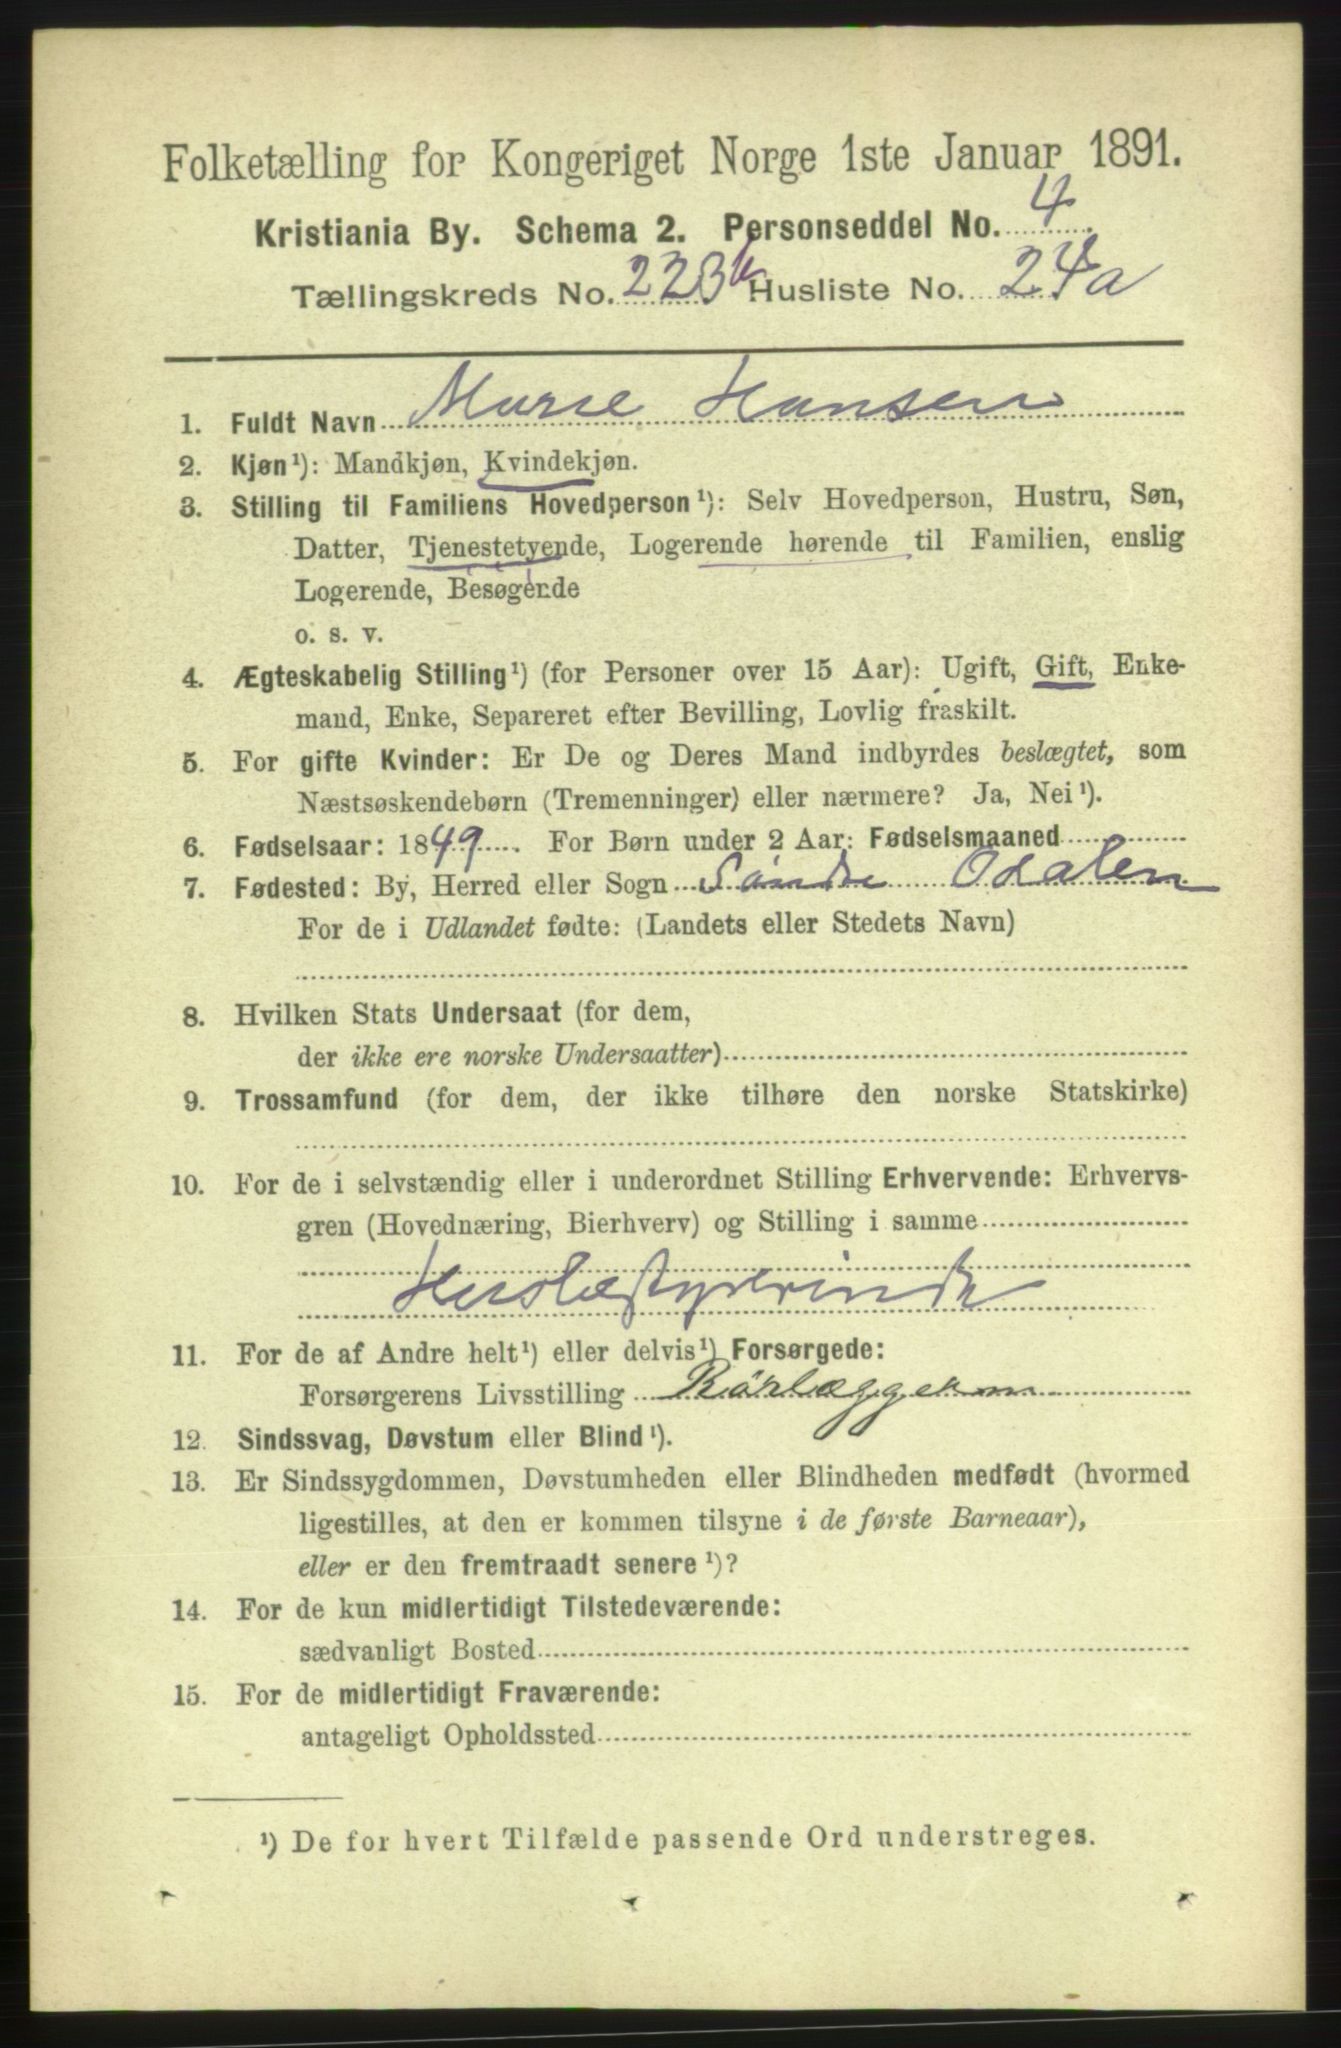 Folketælling for Kongeriget Norge 1ste Januar 1891.
Kristiania By. Schema 2. Personseddel No. 4.
Tællingskreds No. 223b Husliste No. 24a
1. Fuldt Navn Marie Hansen
2. Kjøn¹): Mandkjøn, Kvindekjøn.
3. Stilling til Familiens Hovedperson¹): Selv Hovedperson, Hustru, Søn,
Datter, Tjenestetyende, Logerende hørende til Familien, enslig
Logerende, Besøgende
o. s. v.
4. Ægteskabelig Stilling¹) (for Personer over 15 Aar): Ugift, Gift, Enke-
mand, Enke, Separeret efter Bevilling, Lovlig fraskilt.
5. For gifte Kvinder: Er De og Deres Mand indbyrdes beslægtet, som
Næstsøskendebørn (Tremenninger) eller nærmere? Ja, Nei¹).
6. Fødselsaar: 1849. For Børn under 2 Aar: Fødselsmaaned
7. Fødested: By, Herred eller Sogn Søndre Odalen
For de i Udlandet fødte: (Landets eller Stedets Navn)
8. Hvilken Stats Undersaat (for dem,
der ikke ere norske Undersaatter)
9. Trossamfund (for dem, der ikke tilhøre den norske Statskirke)
10. For de i selvstændig eller i underordnet Stilling Erhvervende: Erhvervs-
gren (Hovednæring, Bierhverv) og Stilling i samme
Husbestyrerinde
11. For de af Andre helt¹) eller delvis¹) Forsørgede:
Forsørgerens Livsstilling Rörlægger
12. Sindssvag, Døvstum eller Blind¹).
13. Er Sindssygdommen, Døvstumheden eller Blindheden medfødt (hvormed
ligestilles, at den er kommen tilsyne i de første Barneaar),
eller er den fremtraadt senere¹)?
14. For de kun midlertidigt Tilstedeværende:
sædvanligt Bosted
15. For de midlertidigt Fraværende:
antageligt Opholdssted
¹) De for hvert Tilfælde passende Ord understreges.